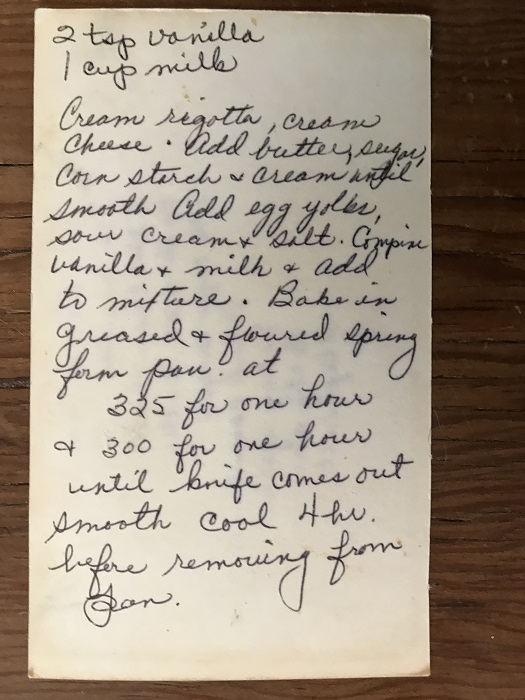 2 tsp vanilla
1 cup milk
Cream rigotta, cream
cheese. Add butter, sugar,
corn starch & cream until
smooth Add egg yolks,
sour cream & salt. Compine
vanilla & milk & add
to mixture. Bake in
greased & floured spring
form pan. at
325 for one hour
& 300 for one hour
until knife comes out
smooth cool 4 hr.
before removing from
pan.